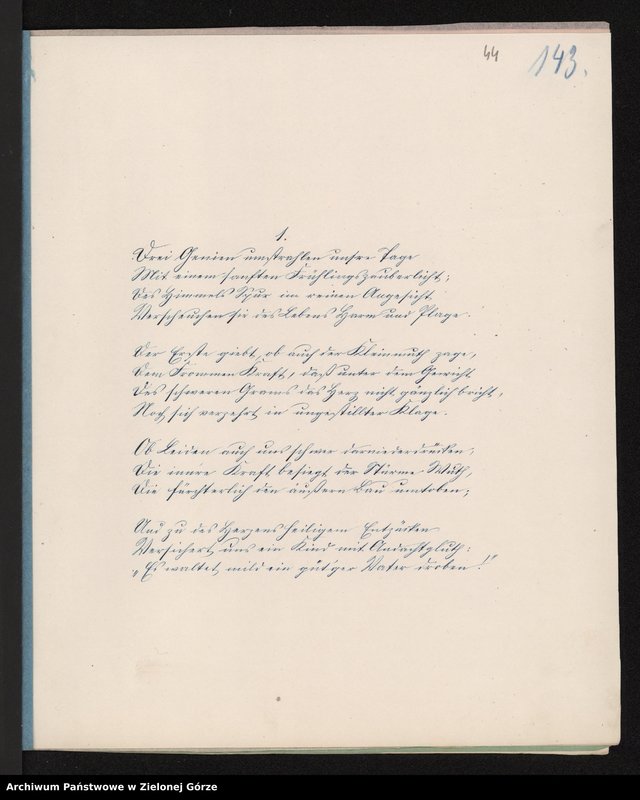 44
143.
1.
Drei Genien umstrahlen unsre Tage
Mit einem sanften Frühlingszauberlicht;
Des Himmels Spur im reinen Angesicht
Verscheuchen sie des Lebens Harm und Plage.
Der Erste giebt, ob auch der Kleinmuth zage,
Dem Frommen Kraft, daß unter dem Gewicht
Des schweren Grams das Herz nicht gänzlich bricht,
Noch sich verzehrt in ungestillter Klage.
Ob Leiden auch uns schwer darniederdrücken,
Die innre Kraft besiegt der Stürme Wuth,
Die fürchterlich den äußern Bau umtoben;
Und zu des Herzens heiligem Entzücken
Versichert uns ein Kind mit Andachtgluth:
„Es waltet mild ein güt'ger Vater droben!"
Archiwum Państwowe w Zielonej Górze